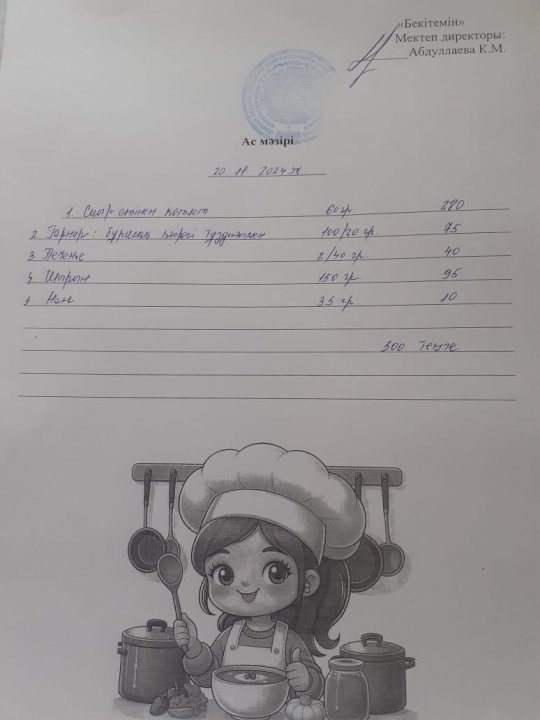 «Бекітемін»
Мектеп директоры:
Абдуллаева К.М.
Ас мәзірі
20 11 2024ж
1. Сиыр етінен котлет 60гр 280
2. Гарнир: бұршақ пюресі тұздықпен 100/20 гр. 75
3. Печенье 2/40 гр. 40
4. Шырын 150 гр. 95
5. Нан 35 гр 10
500 теңге